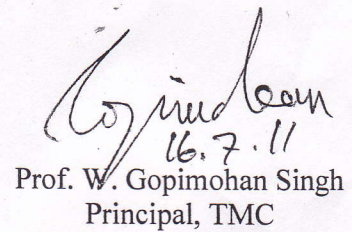 Gopimohan
16.7.11
Prof. W. Gopimohan Singh
Principal, TMC